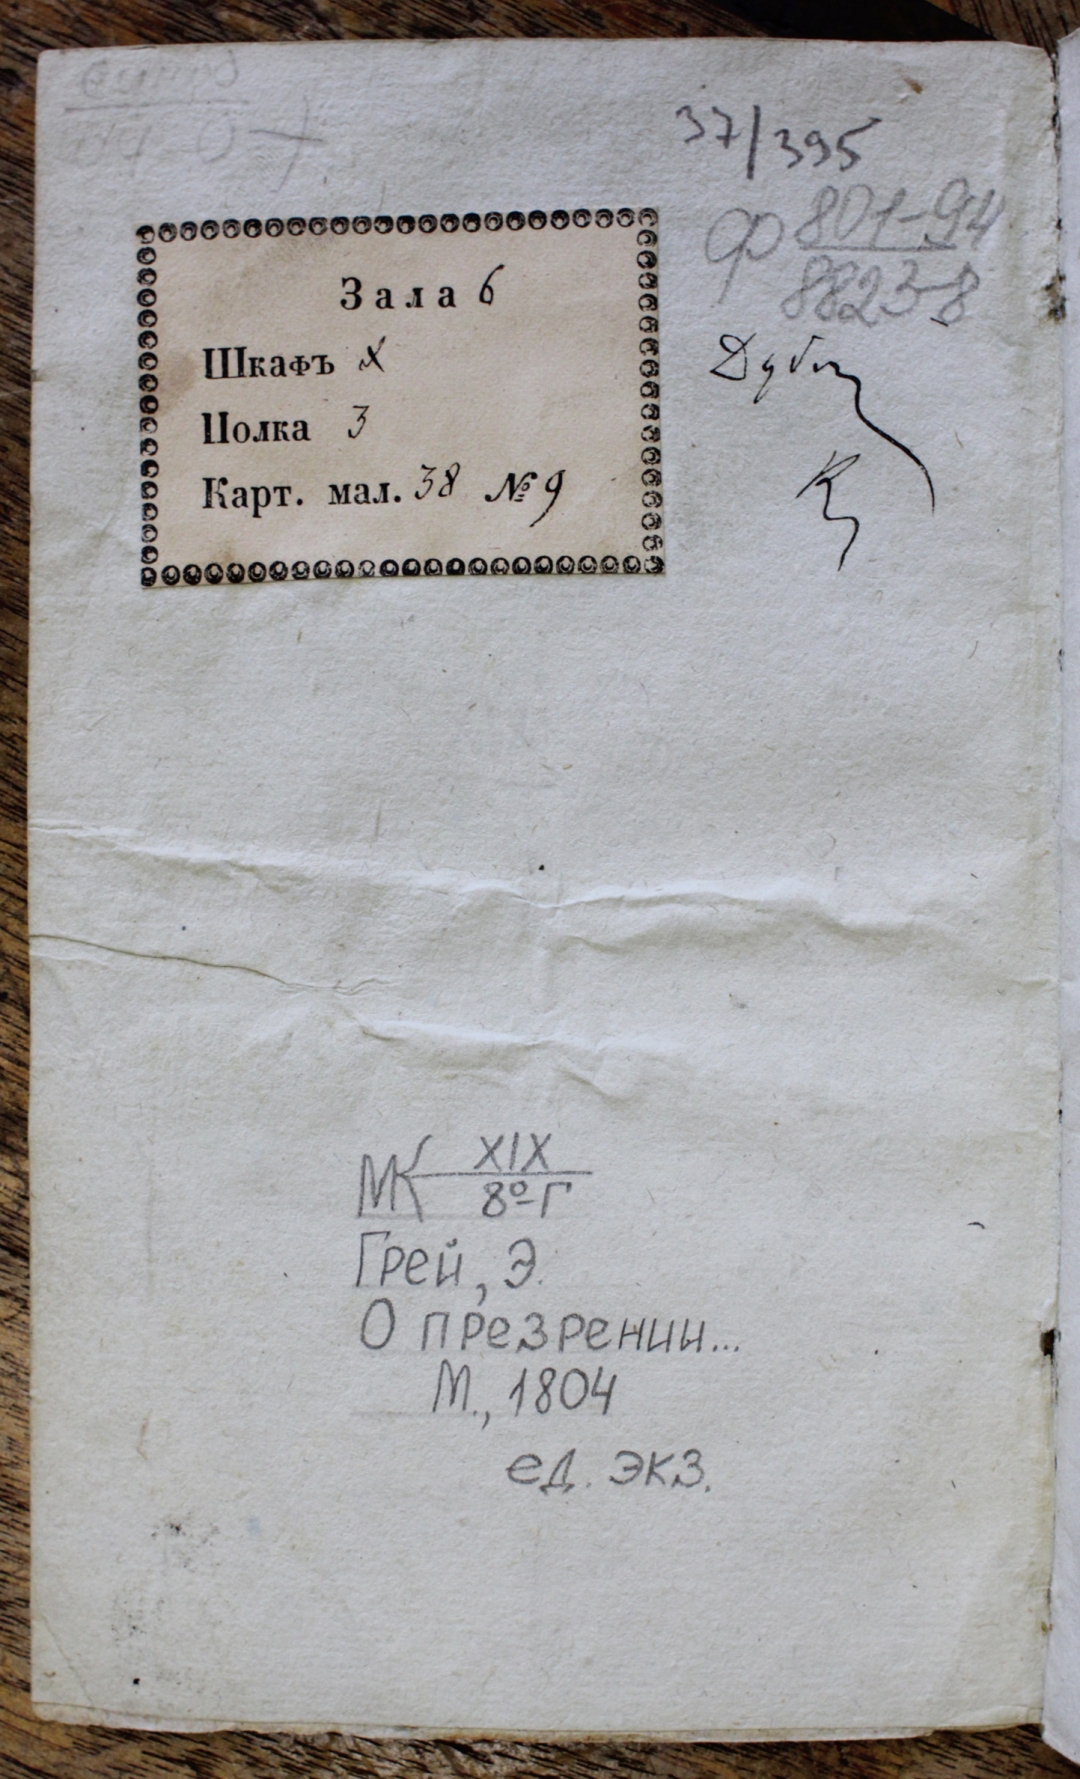 37/395
Ф 801-94
8823-8
Зала 6
Шкафъ X
Полка 3
Карт. мал. 38 № 9
МК XIX
8º-Г
Грей, Э.
О презрении...
М., 1804
ед. экз.